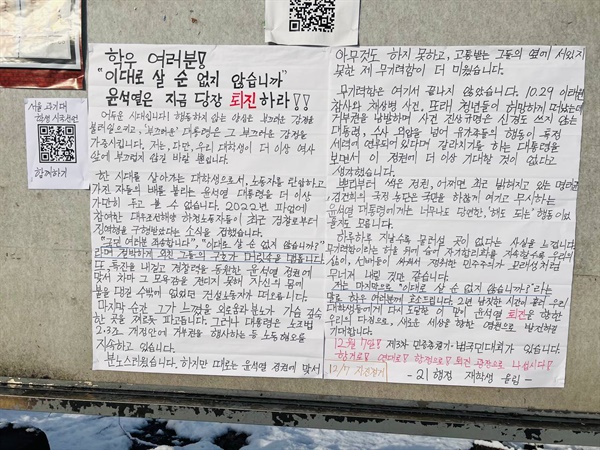 서울과기대
학생 시국선언
함께하기
학우 여러분!
"이대로 살 순 없지 않습니까"
윤석열은 지금 당장 퇴진하라!!
어두운 시대입니다! 행동하지 않는 양심은 부끄러운 감정을
불러일으키고, '부끄러운' 대통령은 그 부끄러운 감정을
가중시킵니다. 저는, 다만, 우리 대학생이 더 이상 역사
앞에 부끄럽지 않길 바랄 뿐입니다.
한 시대를 살아가는 대학생으로서, 노동자를 탄압하고
가진 자들의 배를 불리는 윤석열 대통령을 더 이상
가만히 두고 볼 수 없습니다. 2022년 파업에
참여한 대우조선해양 하청노동자들이 최근 검찰로부터
징역형을 구형받았다는 소식을 접했습니다.
"국민 여러분 죄송합니다", "이대로 살 순 없지 않습니까?"
라며 절박하게 외친 그들의 구호가 머릿속을 맴돕니다.
또, 특진을 내걸고 경찰력을 동원한 윤석열 정권에
맞서 차마 그 모욕감을 견디지 못해 자신의 몸에
불을 댕길 수밖에 없었던 건설노동자가 떠오릅니다.
마지막 순간, 그가 느꼈을 외로움과 분노가 가슴 깊숙
한 곳을 저르듯 파고듭니다. 그러나 대통령은 노조법
2·3조 개정안에 거부권을 행사하는 등 노동 혐오를
지속하고 있습니다.
분노스러웠습니다. 하지만 때로는 윤석열 정권에 맞서
아무것도 하지 못하고, 고통받는 그들의 옆에 서있지
못한 제 무기력함이 더 미웠습니다.
무기력함은 여기서 끝나지 않았습니다. 10.29 이태원
참사와 채상병 사건, 또래 청년들이 허망하게 떠났는데
거부권을 남발하며 사건 진상규명은 신경도 쓰지 않는
대통령, 수사 외압을 넘어 유가족들의 행동이 특정
세력에 연루되어 있다며 갈라치기를 하는 대통령을
보면서 이 정권에 더 이상 기대할 것이 없다고
생각했습니다.
뿌리부터 썩은 정권, 어쩌면 최근 밝혀지고 있는 명태균,
김건희의 국정 농단은 국민을 하찮게 여기고 무시하는
윤석열 대통령에게는 너무나도 당연한, '해도 되는' 행동이었
을지도 모릅니다.
하루하루 지날수록 물러설 곳이 없다는 사실을 느낍니다.
무기력함이라는 구실 뒤에 숨어 자기합리화를 지속할수록 우리의
삶이, 선배들이 싸워서 쟁취한 민주주의가 모래성처럼
무너져 내릴 것만 같습니다.
저는 마지막으로 "이대로 살 순 없지 않습니까?"라는
말로 학우 여러분께 호소드립니다. 2년 남짓한 시간이 흘러 우리
대학생들에게 다시 도달한 이 말이 윤석열 퇴진을 향한
우리의 다짐으로, 새로운 세상을 향한 염원으로 발전하길
기대합니다.
12월 7일! 제3차 민중총궐기·범국민대회가 있습니다.
함께 해요! 연대로! 함성으로! 퇴진 광장으로 나섭시다!
12/7 자진철거
- 21 행정 재학생 올림 -